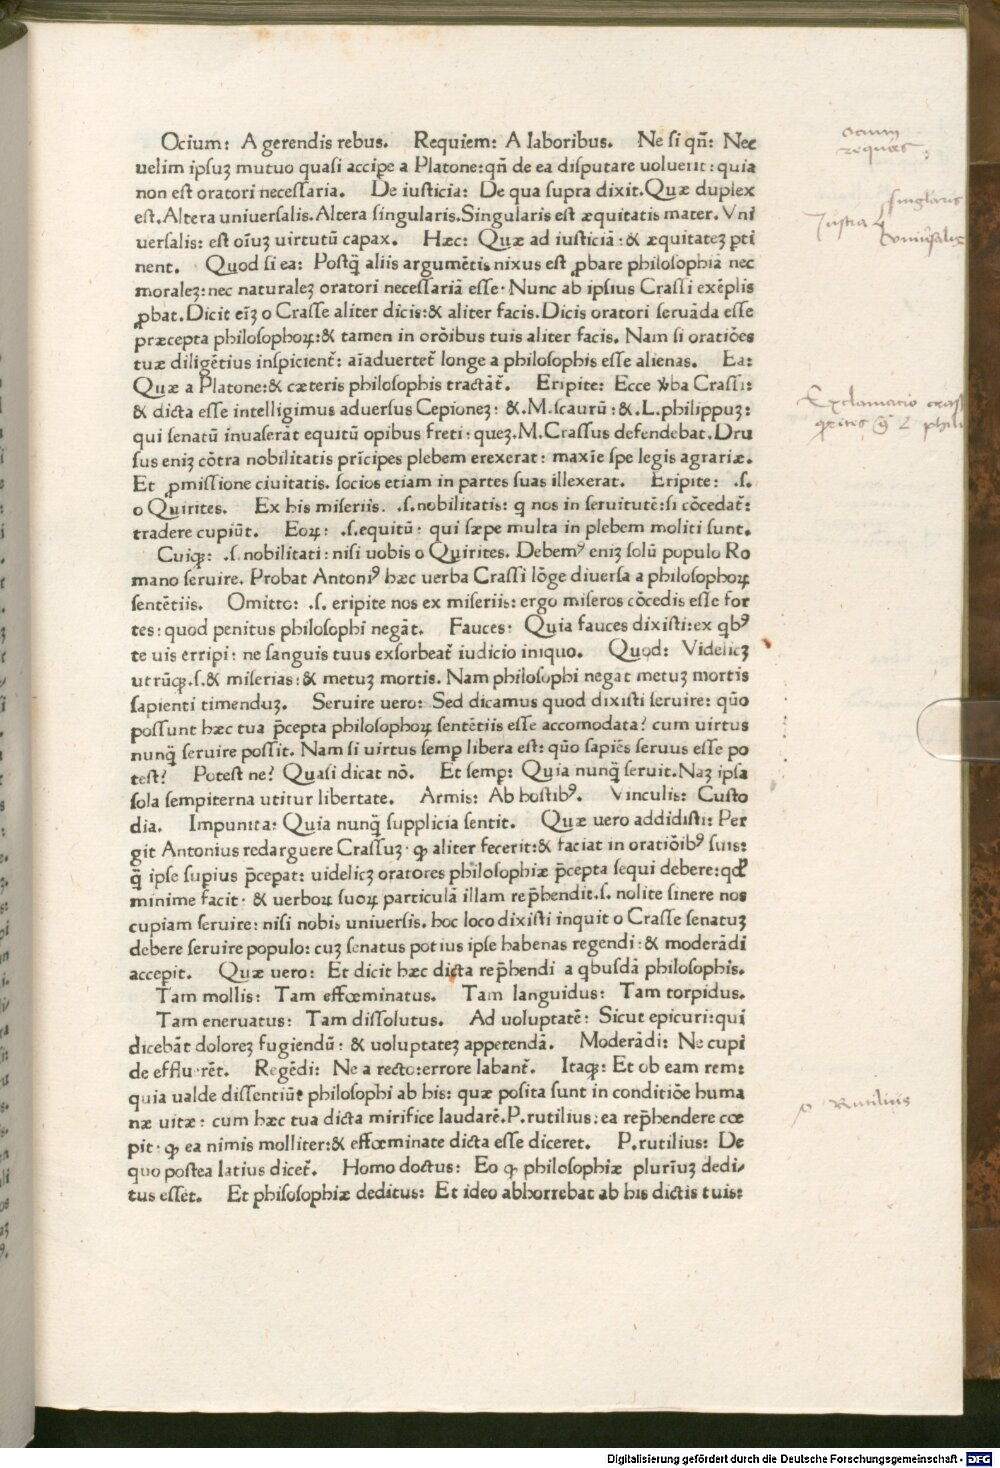 Ocium: A gerendis rebus. Requiem: A laboribus. Ne si qñ: Nec
uelim ipsuꝫ mutuo quasi accipe a Platone:qñ de ea disputare uoluerit: quia
non est oratori necessaria. De iusticia: De qua supra dixit. Quæ duplex
est. Altera uniuersalis. Altera singularis. Singularis est æquitatis mater. Vni
uersalis: est oīuꝫ uirtutū capax. Hæc: Quæ ad iusticiā: & æquitateꝫ ꝑti
nent. Quod si ea: Postq̃ aliis argumētis nixus est ꝓbare philosophiā nec
moraleꝫ: nec naturaleꝫ oratori necessariā esse· Nunc ab ipsius Crassi exēplis
ꝓbat. Dicit eīꝫ o Crasse aliter dicis: & aliter facis. Dicis oratori seruāda esse
præcepta philosophoꝝ: & tamen in orōibus tuis aliter facis. Nam si oratiōes
tuæ diligētius inspicient̃: aīaduertet̃ longe a philosophis esse alienas. Ea:
Quæ a Platone: & cæteris philosophis tractāt̃. Eripite: Ecce ꝟba Crassi:
& dicta esse intelligimus aduersus Cepioneꝫ: &. M. scaurū: &. L. philippuꝫ:
qui senatū inuaserāt equitū opibus freti: queꝫ. M. Crassus defendebat. Dru
sus eniꝫ cōtra nobilitatis prīcipes plebem erexerat: maxīe spe legis agrariæ.
Et ꝓmissione ciuitatis. socios etiam in partes suas illexerat. Eripite: .s.
o Quirites. Ex his miseriis. .s. nobilitatis: q nos in seruitutē: si cōcedat̃:
tradere cupiūt. Eoꝝ: .s. equitū· qui sæpe multa in plebem moliti sunt.
Cuiqꝫ: .s. nobilitati: nisi uobis o Quirites. Debemꝰ eniꝫ solū populo Ro
mano seruire. Probat Antoniꝰ hæc uerba Crassi lōge diuersa a philosophoꝝ
sentētiis. Omitto: .s. eripite nos ex miseriis: ergo miseros cōcedis esse for
tes: quod penitus philosophi negāt. Fauces: Quia fauces dixisti: ex qbꝰ
te uis erripi: ne sanguis tuus exsorbeat̃ iudicio iniquo. Quod: Videlicꝫ
utrūqꝫ .s. & miserias: & metuꝫ mortis. Nam philosophi negāt metuꝫ mortis
sapienti timenduꝫ. Seruire uero: Sed dicamus quod dixisti seruire: quō
possunt hæc tua p̄cepta philosophoꝝ sentētiis esse accomodata? cum uirtus
nunq̃ seruire possit. Nam si uirtus semꝑ libera est: quō sapiēs seruus esse po
test? Potest ne? Quasi dicat nō. Et semꝑ: Quia nunq̃ seruit. Naꝫ ipsa
sola sempiterna utitur libertate. Armis: Ab hostibꝰ. Vinculis: Custo
dia. Impunita: Quia nunq̃ supplicia sentit. Quæ uero addidisti: Per
git Antonius redarguere Crassuꝫ· ꝙ aliter fecerit: & faciat in oratiōibꝰ suis:
q̃ ipse supius p̄cepat: uidelicꝫ oratores philosophiæ p̄cepta sequi debere: qđ
minime facit· & uerboꝝ suoꝝ particulā illam rep̄hendit. s. nolite sinere nos
cupiam seruire: nisi nobis uniuersis. hoc loco dixisti inquit o Crasse senatuꝫ
debere seruire populo: cuꝫ senatus potius ipse habenas regendi: & moderādi
accepit. Quæ uero: Et dicit hæc dicta rep̄hendi a qbusdā philosophis.
Tam mollis: Tam effœminatus. Tam languidus: Tam torpidus.
Tam eneruatus: Tam dissolutus. Ad uoluptatē: Sicut epicuri: qui
dicebāt doloreꝫ fugiendū: & uoluptateꝫ appetendā. Moderādi: Ne cupi
de effluerēt. Regēdi: Ne a recto: errore labant̃. Itaqꝫ: Et ob eam rem:
quia ualde dissentiūt philosophi ab his: quæ posita sunt in conditiōe huma
næ uitæ: cum hæc tua dicta mirifice laudarē. P. rutilius: ea rep̄hendere cœ
pit· ꝙ ea nimis molliter: & effœminate dicta esse diceret. P. rutilius: De
quo postea latius dicet̃. Homo doctus: Eo ꝙ philosophiæ plurīuꝫ dedi/
tus esset. Et phisosophiæ deditus: Et ideo abhorrebat ab his dictis tuis:
ocium
requies
Justicia
singlaris
Exclamatio
Rutilius
Digitalisierung gefördert durch die Deutsche Forschungsgemeinschaft - DFG